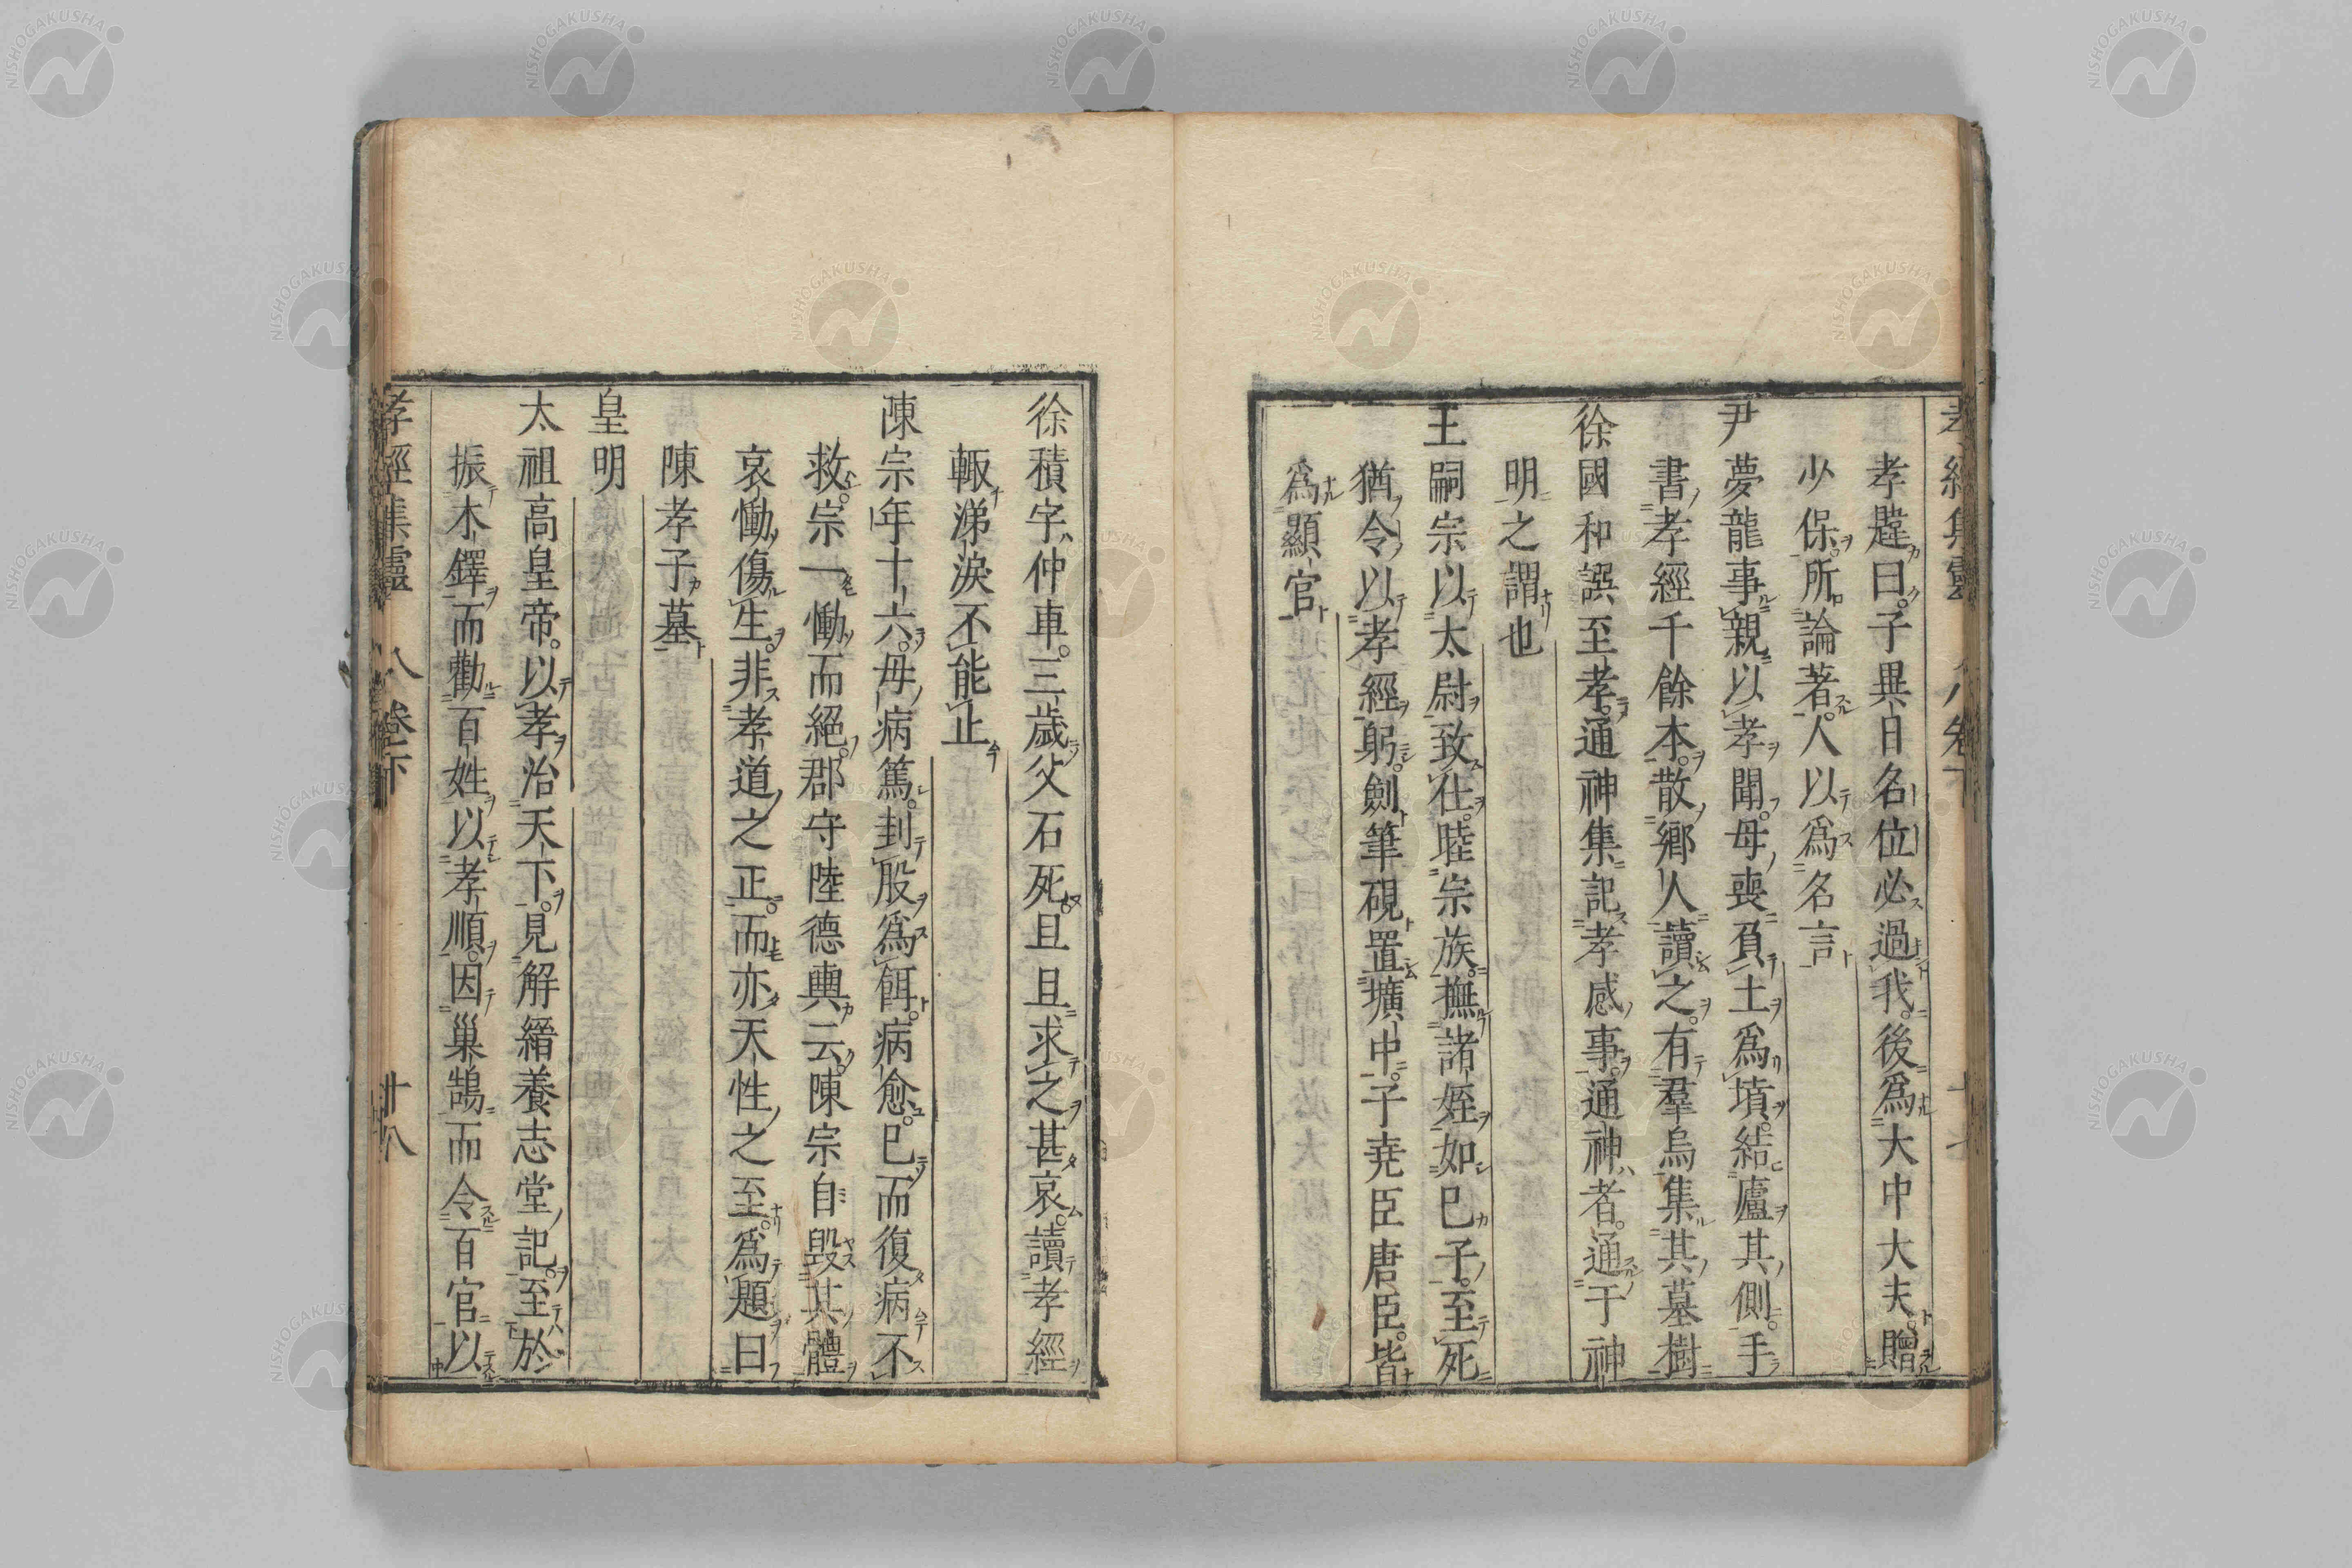 孝韙曰子異日名位必過我後爲大中大夫贈
少保所論著人以爲名言
尹夢龍事親以孝聞母喪負土爲墳結廬其側手
書孝經千餘本散鄉人讀之有羣烏集其墓樹
徐國和譔至孝通神集記孝感事通神者通于神
明之謂也
王嗣宗以太尉致仕睦宗族撫諸姪如已子至死
猶令以孝經躬劍筆硯置壙中子尭臣唐臣皆
爲顯官
徐積字仲車三歲父石死旦旦求之甚哀讀孝經
輙涕淚不能止
陳宗年十六母病篤刲股爲餌病愈已而復病不
救宗一慟而絕郡守陸德輿云陳宗自毀其體
哀慟傷生非孝道之正而亦天性之至爲題曰
陳孝子墓
皇明
太祖高皇帝以孝治天下見解縉養志堂記至於
振木鐸而勸百姓以孝順因巢鵠而令百官以
孝經集靈 卷下 十八
NISHOGAKUSHA